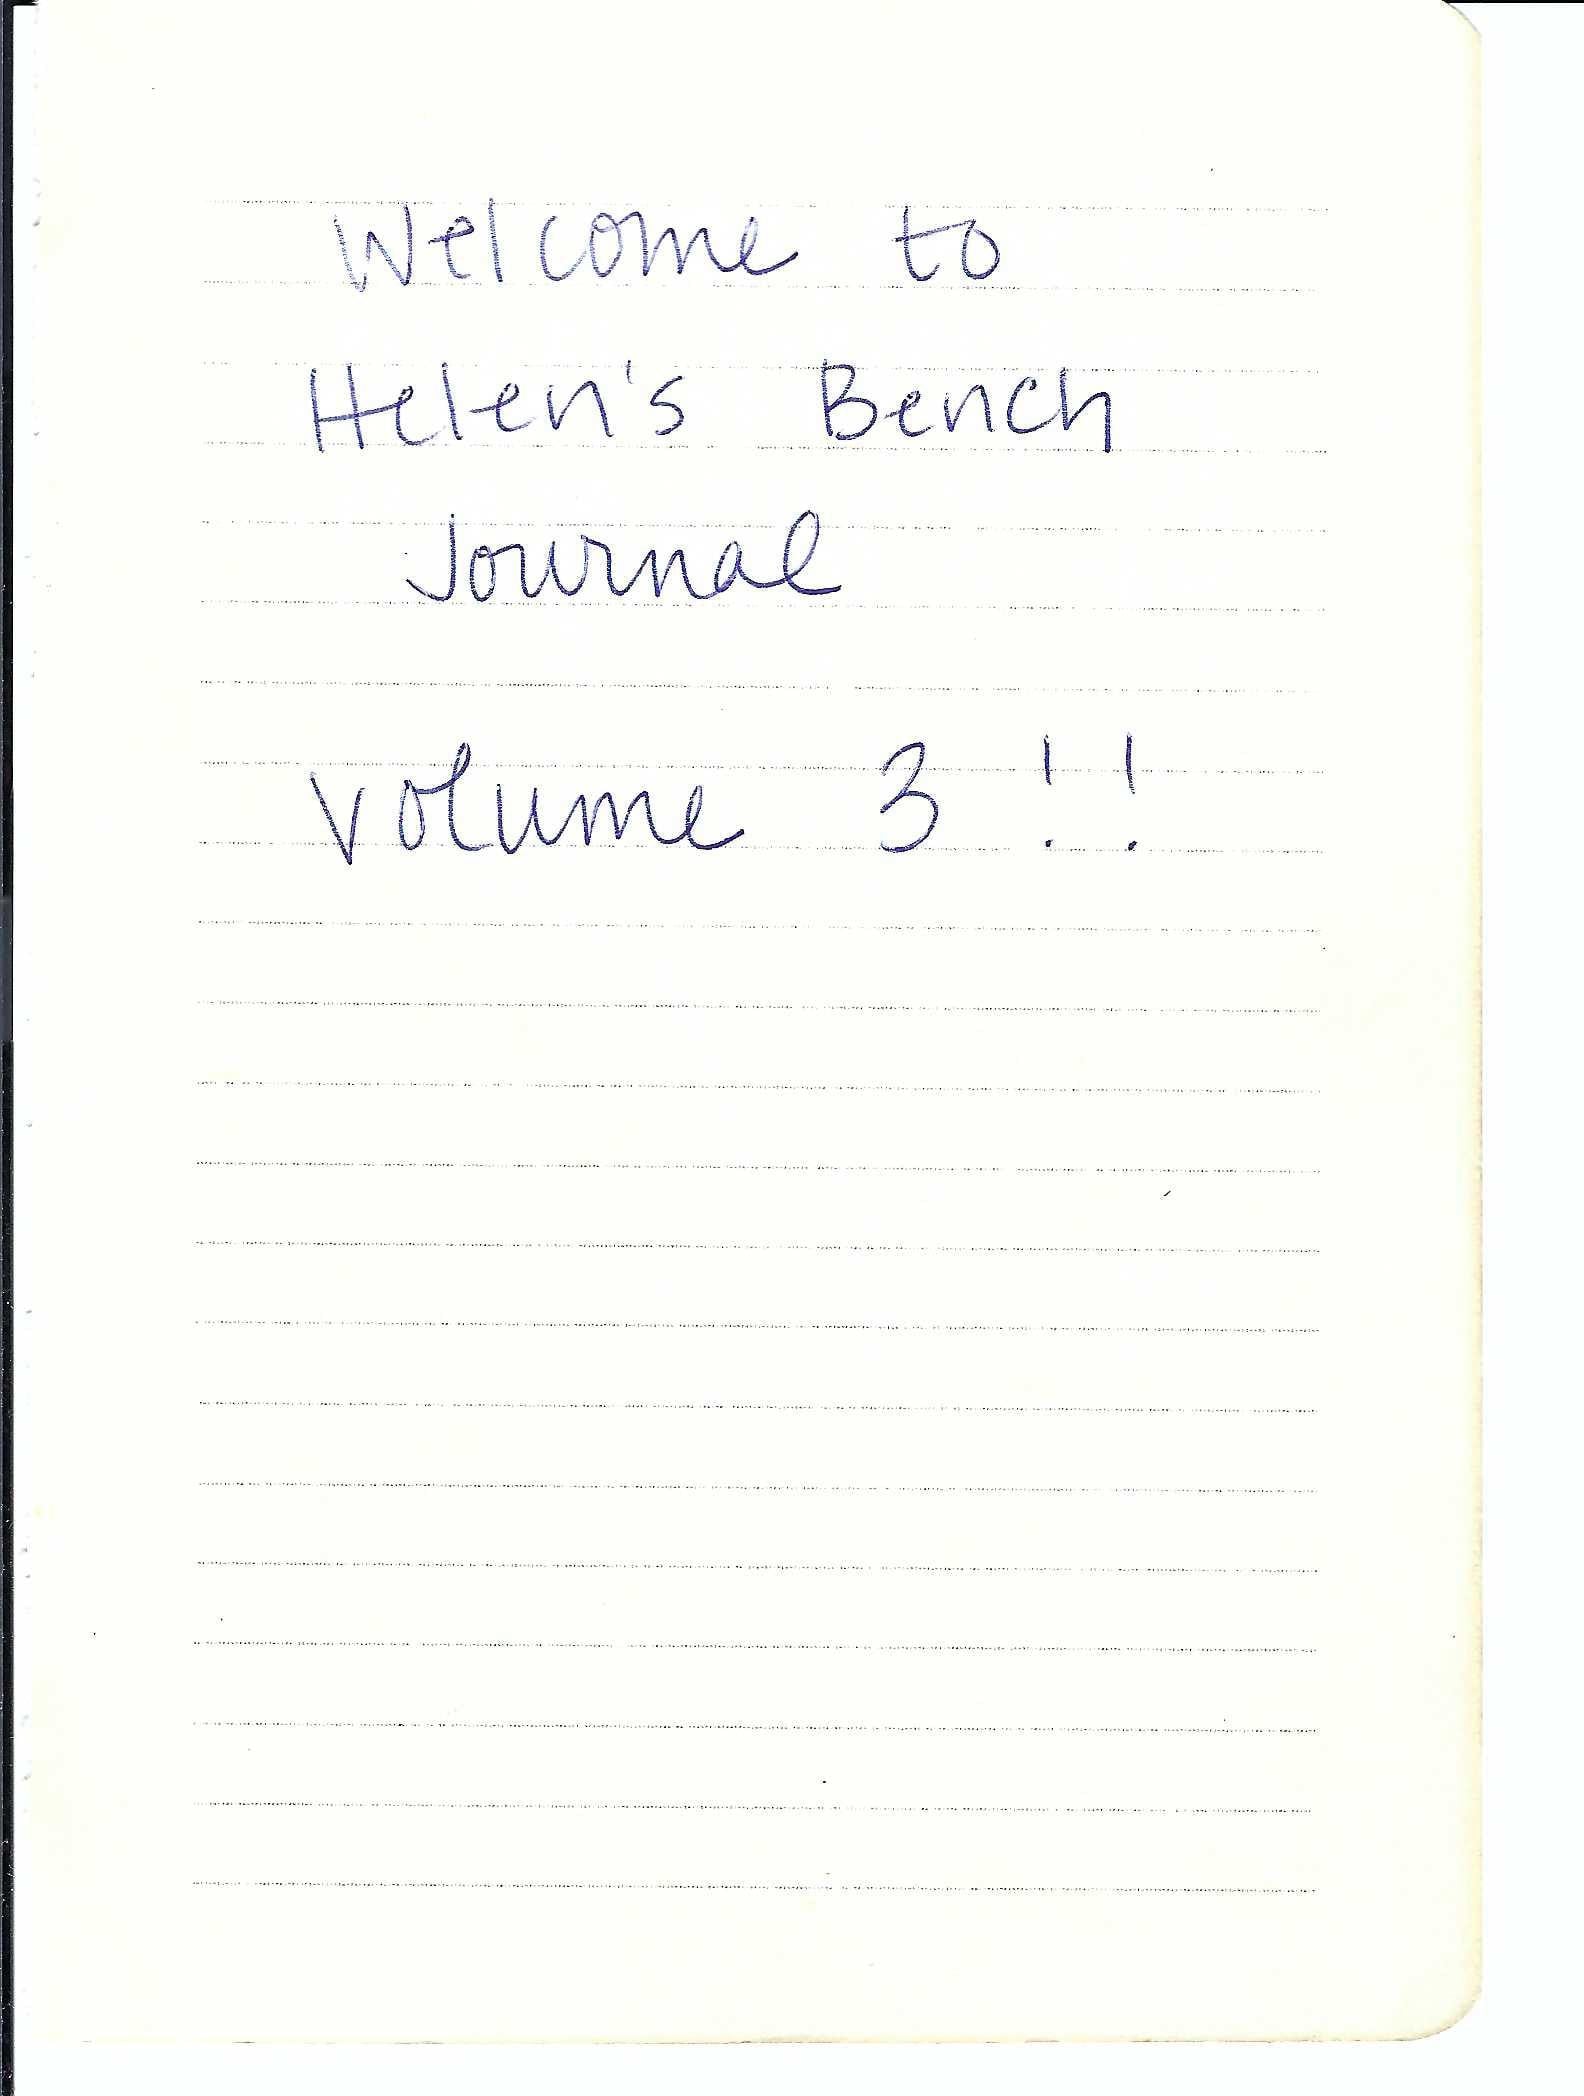 Welcome to
Helen's Bench
Journal
Volume 3 !!